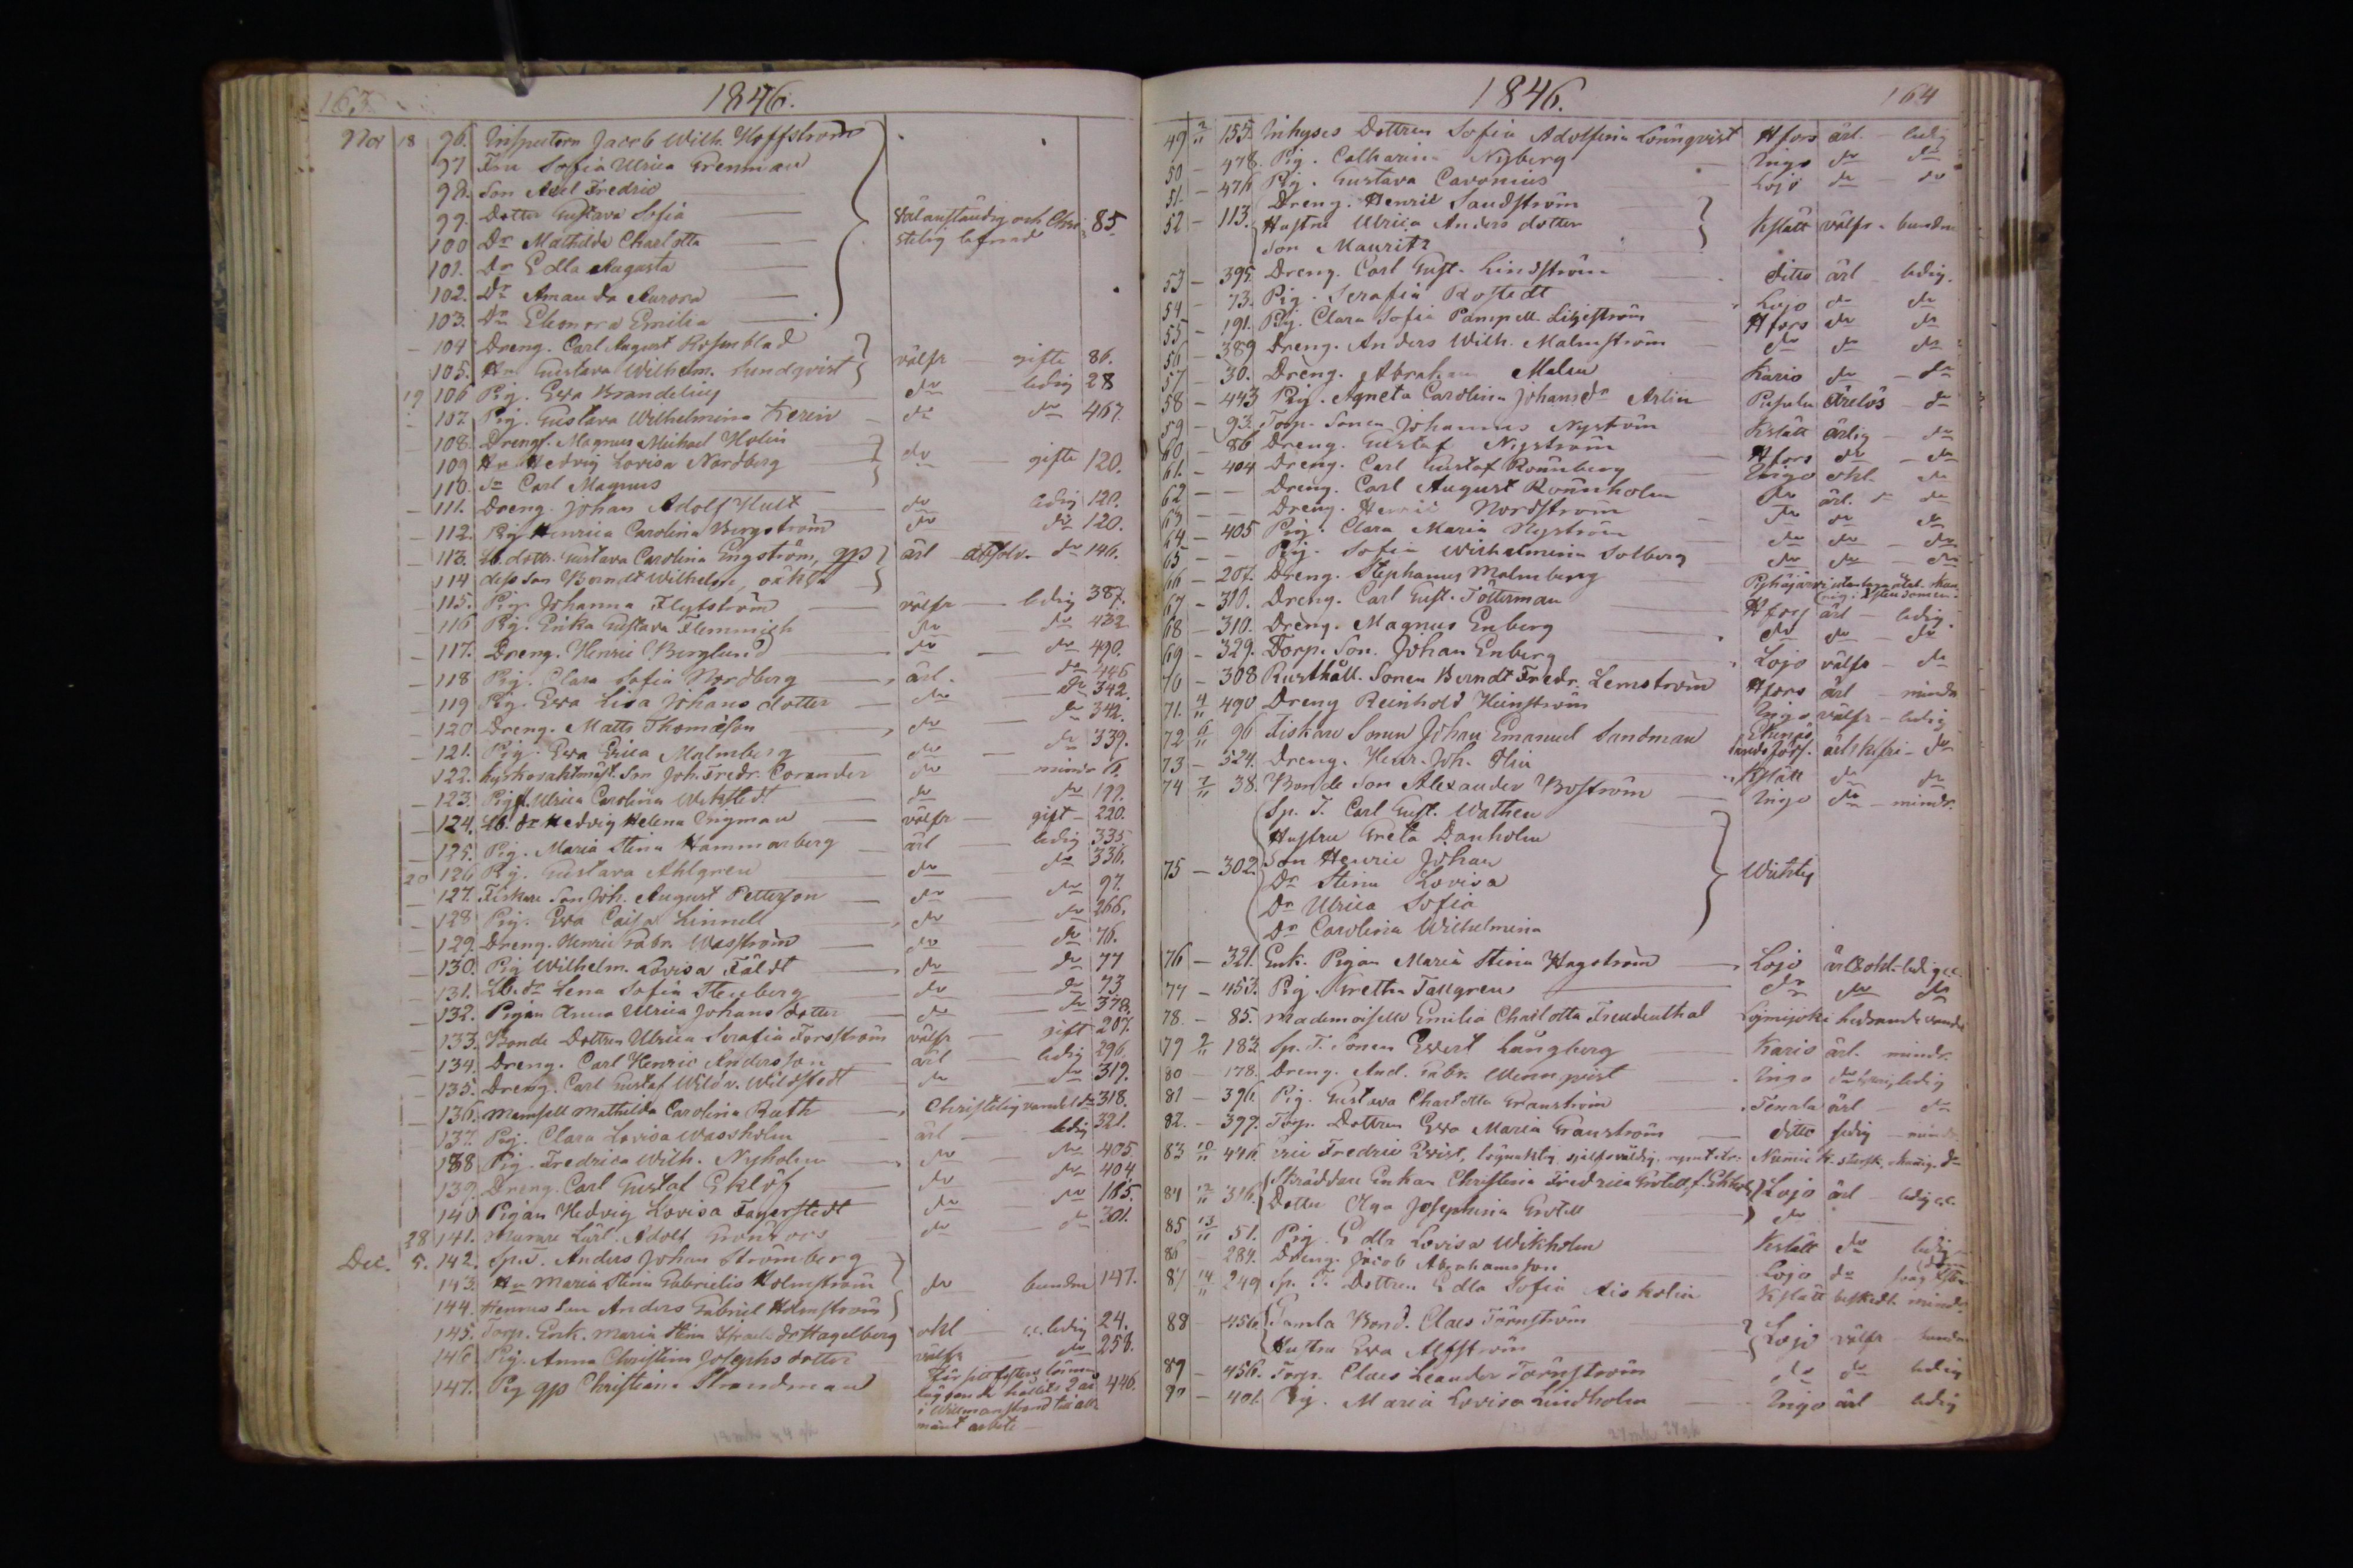 163
1846.
Nov 18 96. Inspectorn Jacob Wilh. Hoffström
97 Fru Sofia Ulrica Grenman
98. Son Axel Fredric
99. Dotter Gustava Sofia
100 Dr Mathilda Charlotta
Välanständig och Chri- 85
stelig lefnad
101. Dr Edla Augusta
102. Dr Amanda Aurora
103. Dr Eleonora Emilia
104 Dreng. Carl August Rosenblad
105. Hu Gustava Wilhelm. Sundqvist välfr gifte 86.
19 106 Pig. Eva Brandelius do ledig 28
107 Pig. Gustava Wilhelmina do do 467.
108. Drengf. Magnus Michael Holm
109 Hu Hedvig Lovisa Nordberg do gifte 120.
110. sn Carl Magnus
111. Dreng. Johan Adolf Hult do ledig 120.
112. Pig Henrica Carolina Bergström do do 120.
113. dottr. Gustava Carolina Engström, qp ärl absolv. do 146.
114 dess son Berndt Wilhelm, oäkta
115. Pig. Johanna Flytström välfr ledig 387.
116 Pig. Erika Gustava Flemmich do do 432
117. Dreng. Henric Berglund do do 490.
118 Pig. Clara Sofia Nordberg ärl. do 446
119 Pig. Eva Lisa Johans dotter do do 342.
120 Dreng. Matts Thomasson do do 342.
121. Pig. Eva Erica Malmberg do do 339.
122. Kyrkovaktmäst. Son Joh. Fredr. Corander do mindr
123. Pig. Ulrica Carolina Wikstedt do do 199.
124. dr Hedvig Helena Ingman välfr gift 220.
125. Pig. Maria Stina Hammarberg ärl ledig 335.
20 126 Pig. Gustava Ahlgren do do 336.
127. Fiskare Son Joh. August Petterson do do 97.
128 Pig. Eva Caisa Linnell do do 266.
129. Dreng. Henric Gabr. Wasström do do 76.
130. Pig Wilhelm. Lovisa Fäldt do do 77
131. dr Lena Sofia Stenberg do do 73
132. Pigan Anna Ulrica Johans dotter do do 378.
133. Bonde Dottren Ulrica Serafia Forsström välfr gift 207.
134. Dreng. Carl Henric Andersson ärl ledig 296.
135. Dreng. Carl Gustaf Wild v. Wildstedt do do 319.
136. Mamsell Mathilda Carolina Ruth Christelig vandel do 318.
137. Pig. Clara Lovisa Wassholm ärl ledig 321.
138 Pig. Fredrica Wilh. Nyholm do do 405.
139. Dreng. Carl Gustaf Eklöf do do 404.
140 Pigan Hedvig Lovisa Fagerstedt do do 185.
28 141. Murare Lärl. Adolf Grönfors do do 301.
Dec. 5. 142. Sp. T. Anders Johan Strömberg
143. Hu Maria Stina Gabrielis Holmström do bundne 147.
144. Hennes Son Anders Gabriel Holmström
145. Torp. Enk. Maria Stina Israels dr Hagelberg okl ledig 24.
146 Pig. Anna Christina Josephs dotter välfr do 258.
147. Pig qp Christiana Strandman för sitt fosters lönn- 446.
läggande hållits 2 år
i Willmanstrand till all-
mänt arbete
1846. 164
49 2/11 155. Inhyses Dottren Sofia Adolfina Lönnqvist Hfors ärl. ledig
50 478 Pig. Catharina Nyberg Ingo do do
51. 476 Pig. Gustava Cavonius Lojo do do
Dreng. Henric Sandström
52 113. Hustru Ulrica Anders dotter Kslätt välfr. bundne
Son Mauritz
53 395. Dreng. Carl Gust. Lindström ditto ärl ledig.
54 73. Pig. Serafia Rostedt Lojo do do
55 191. Pig. Clara Sofia Pampell. Hfors do do
56 389 Dreng. Anders Wilh. Malmström do do do
57 30. Dreng. Abraham Malm Karis do do
58 443 Pig. Agneta Carolina Johansdr Arlin Pusula ärelös do
59 93. Torp. Sonen Johannes Nyström Kslätt ärlig do
60 86 Dreng. Gustaf Nyström Hfors do do
61. 404 Dreng. Carl Gustaf Rönnberg Ingo okl. do
62 Dreng. Carl August Rönnholm do ärl. do
63 Dreng. Henric Nordström do do do
64 405 Pig. Clara Maria Nyström do do do
65 Pig. Sofia Wilhelmina Solberg do do do
66 207. Dreng. Stephanus Malmberg Pyhäjärvi
67 310. Dreng. Carl Gust. Tötterman Hfors ärl ledig.
68 310. Dreng. Magnus Enberg do do do
69 329. Torp. Son. Johan Enberg Lojo välfr do
70 308 Rusthåll. Sonen Berndt Fredr. Lemström Hfors ärl mindr
71. 4/11 490 Dreng Reinhold Heinström Ingo välfr ledig
72 6/11 96 Fiskare Sonen Johan Emanuel Sandman Ekenäs
landsförs. ärl do
73 324. Dreng. Henr. Joh. Kslätt do do
74 7/11 38. Bonde Son Alexander Boström Ingo do mindr.
Sp. T. Carl Gust. Wathen
Hustru Greta Danholm
75 302. Son Henric Johan
Dr Stina Lovisa Wichtis
Dr Ulrica Sofia
Dr Carolina Wilhelmina
76 321. Enk. Pigan Maria Stina Hagström Lojo ärl & okl. ledig
77 453. Pig. Gretha Tallgren do do do
78. 85. Mademoiselle Emilia Charlotta Freudenthal
79 9/11 183 Sp. T. Sonen Evert Långberg Karis ärl. mindr.
80 178. Dreng. And. Gabr. Wennqvist Ingo do ledig
81 396. Pig. Gustava Charlotta Granström Tenala ärl do
82. 397. Torp. Dottren Eva Maria Granström ditto ledig mindr
83 10/11 446. Eric Fredric Qvist,
Skräddare Enkan Christina Fredrica Grotell f. Ekholm
84 12/11 316. Lojo ärl ledig
Dotter Olga Josephina Grotell do
85 13/11 51. Pig. Edla Lovisa Wikholm Kslätt do ledig
86 284. Dreng. Jacob Abrahamsson Lojo do
87 14/11 249 Sp. T. Dottren Edla Sofia Kslätt beskedl. mindr
88 456. Gamla Bond. Claes Törnström
Hustru Eva Alfström Lojo välfr bundne
89 456. Torp. Claes Leander Törnström do do ledig
90 401. Pig. Maria Lovisa Lindholm Ingo ärl ledig